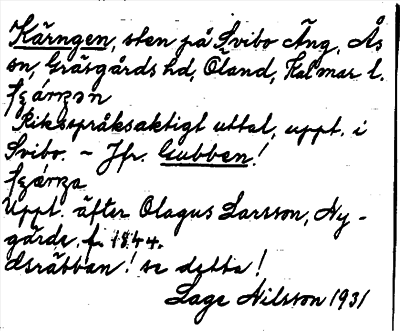 Kärngen, sten på Svibo Äng, Ås
sn, Gräsgårds hd, Öland, Kalmar l.
Riksspråksaktigt uttal, uppt. i
Svibo. - Jfr. Gubben!
Uppt. äfter Olagus Larsson, Ny-
gärde, f. 1844.
se detta!
Lage Nilsson 1931